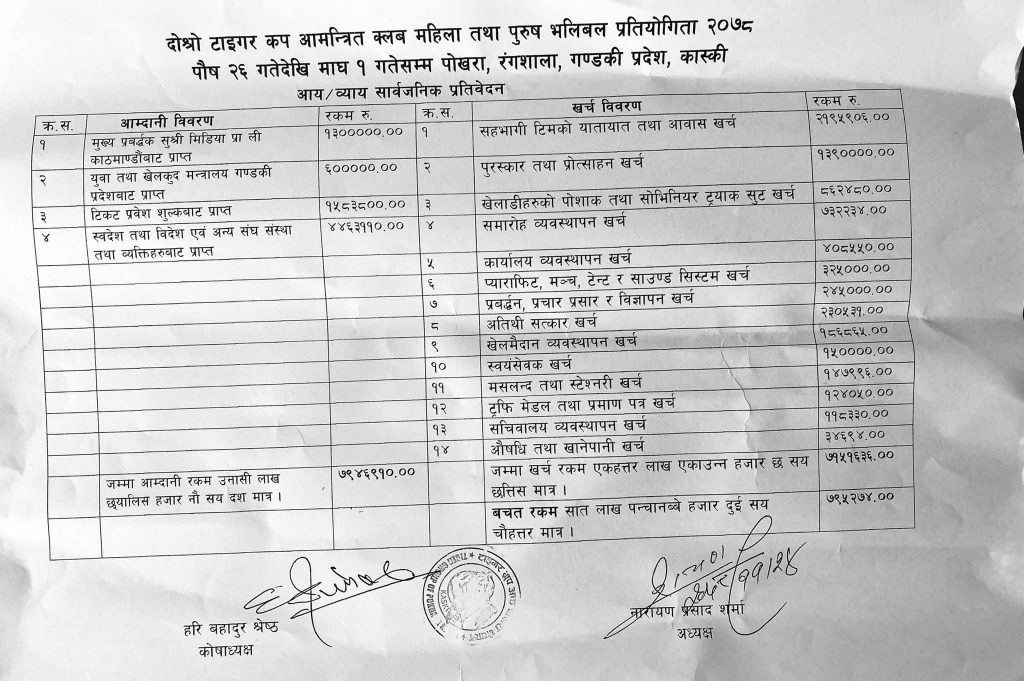 दोश्रो टाइगर कप आमन्त्रित क्लब महिला तथा पुरुष भलिबल प्रतियोगिता २०७८
पौष २६ गतेदेखि माघ १ गतेसम्म पोखरा, रंगशाला, गण्डकी प्रदेश, कास्की
आय/व्याय सार्वजनिक प्रतिवेदन
क्र.स. आम्दानी विवरण रकम रु. क्र.स. खर्च विवरण रकम रु.
१ मुख्य प्रबर्द्धक सुश्री मिडिया प्रा ली १३०००००.०० १ सहभागी टिमको यातायात तथा आवास खर्च २१९५९०६.००
काठमाण्डौंबाट प्राप्त
२ युवा तथा खेलकुद मन्त्रालय गण्डकी ६०००००.०० २ पुरस्कार तथा प्रोत्साहन खर्च १३९००००.००
प्रदेशबाट प्राप्त
३ टिकट प्रवेश शुल्कबाट प्राप्त १५८३८००.०० ३ खेलाडीहरुको पोशाक तथा सोभिनियर ट्रयाक सुट खर्च ८६२४८०.००
४ स्वदेश तथा विदेश एवं अन्य संघ संस्था ४४६३११०.०० ४ समारोह व्यवस्थापन खर्च ७३२२३४.००
तथा व्यक्तिहरुबाट प्राप्त
५ कार्यालय व्यवस्थापन खर्च ४०८५५०.००
६ प्याराफिट, मञ्च, टेन्ट र साउण्ड सिस्टम खर्च ३२५०००.००
७ प्रबर्द्धन, प्रचार प्रसार र विज्ञापन खर्च २४५०००.००
८ अतिथी सत्कार खर्च २३०५३१.००
९ खेलमैदान व्यवस्थापन खर्च १८६८६५.००
१० स्वयंसेवक खर्च १५००००.००
११ मसलन्द तथा स्टेश्नरी खर्च १४७९९६.००
१२ ट्रफि मेडल तथा प्रमाण पत्र खर्च १२४०५०.००
१३ सचिवालय व्यवस्थापन खर्च ११८३३०.००
१४ औषधि तथा खानेपानी खर्च ३४६९४.००
जम्मा आम्दानी रकम उनासी लाख ७९४६९१०.०० जम्मा खर्च रकम एकहत्तर लाख एकाउन्न हजार छ सय ७१५१६३६.००
छ्यालिस हजार नौ सय दश मात्र । छत्तिस मात्र ।
बचत रकम सात लाख पन्चानब्बे हजार दुई सय ७९५२७४.००
चौहत्तर मात्र ।
हरि बहादुर श्रेष्ठ
कोषाध्यक्ष
नारायण प्रसाद शर्मा
अध्यक्ष